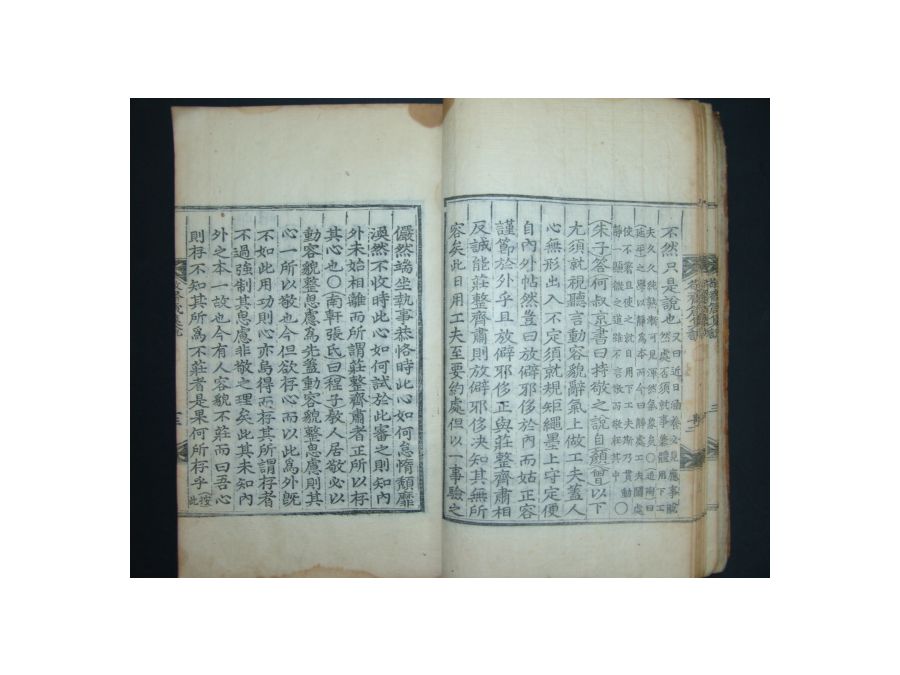 不然只是說也
又曰近日涵養必見應事脫
然處否須就事兼體用下工
夫久久純熟漸可見渾然氣象矣〇
延平之學以靜為本
使不著且使之就日用
〇
朱子答何叔京書曰持敬之說自顏曾以下
尤須就視聽言動容貌辭氣上做工夫蓋人
心無形出入不定須就規矩繩墨上守定便
自內外帖然豈曰放僻邪侈於內而姑正容
謹節於外乎且放僻邪侈正與莊整齊肅相
反誠能莊整齊肅則放僻邪侈决知其無所
容矣此日用工夫至要約處但以一事驗之
儼然端坐執事恭恪時此心如何怠惰頹靡
渙然不收時此心如何試於此審之則知內
外未始相離而所謂莊整齊肅者正所以存
其心也〇南軒張氏曰程子敎人居敬必以
動容貌整思慮為先蓋動容貌整思慮則其
心一所以敬也今但欲存心而以此為外旣
不如此用功則心亦烏得而存其所謂存者
不過強制其思慮非敬之理矣此其未知內
外之本一故也今有人容貌不莊而曰吾心
則存不知其所為不莊者是果何所存乎